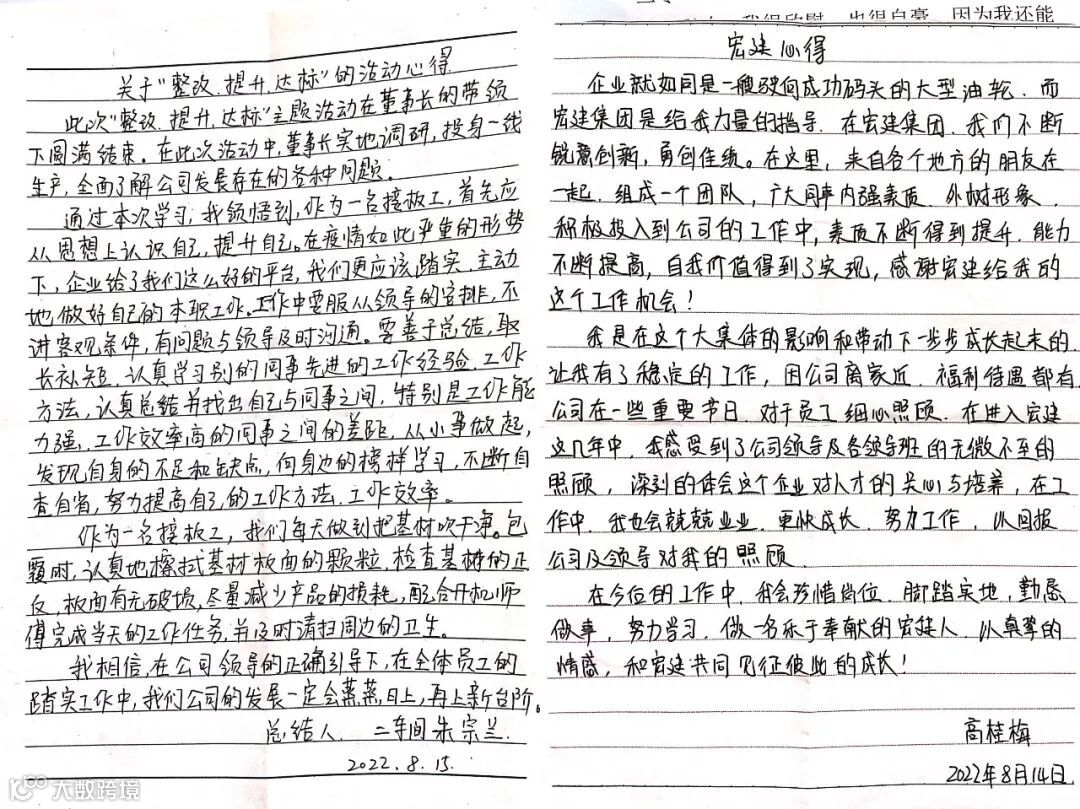 关于“整改.提升.达标”的活动心得
此次“整改.提升.达标”主题活动在董事长的带领
下圆满结束。在此次活动中,董事长实地调研,投身一线
生产,全面了解公司发展存在的各种问题。
通过本次学习,我领悟到,作为一名接板工,首先应
从思想上认识自己,提升自己。在疫情如此严重的形势
下,企业给了我们这么好的平台,我们更应该踏实.主动
地做好自己的本职工作。工作中要服从领导的安排,不
讲客观条件,有问题与领导及时沟通。要善于总结,取
长补短.认真学习别的同事先进的工作经验.工作
方法,认真总结并找出自己与同事之间,特别是工作能
力强.工作效率高的同事之间的差距,从小事做起,
发现自身的不足和缺点,向身边的榜样学习,不断自
查自省,努力提高自己的工作方法.工作效率。
作为一名接板工,我们每天做到把基材吹干净。包
覆时,认真地擦拭基材板面的颗粒.检查基材的正
反,板面有无破损,尽量减少产品的损耗,配合开机师
傅完成当天的工作任务,并及时清扫周边的卫生。
我相信,在公司领导的正确引导下,在全体员工的
踏实工作中,我们公司的发展一定会蒸蒸日上,再上新台阶。
总结人. 二车间 朱宗兰.
2022.8.15.
因为我还能
宏建心得
企业就如同是一艘驶向成功码头的大型油轮.而
宏建集团是给我力量的指导.在宏建集团.我们不断
锐意创新,勇创佳绩。在这里,来自各个地方的朋友在
一起.组成一个团队,广大同事内强素质.外树形象.
积极投入到公司的工作中,素质不断得到提升.能力
不断提高,自我价值得到了实现,感谢宏建给我的
这个工作机会!
我是在这个大集体的影响和带动下一步步成长起来的.
让我有了稳定的工作,因公司离家近.福利待遇都有.
公司在一些重要节日.对于员工细心照顾.在进入宏建
这几年中.我感受到了公司领导及各领导班的无微不至的
照顾,深刻的体会这个企业对人才的关心与培养,在工
作中.我也会兢兢业业.更快成长.努力工作,以回报
公司及领导对我的照顾.
在今后的工作中,我会珍惜岗位.脚踏实地,勤恳
做事,努力学习.做一名乐于奉献的宏建人.以真挚的
情感,和宏建共同见证彼此的成长!
高桂梅
2022年8月14日.
大数跨境